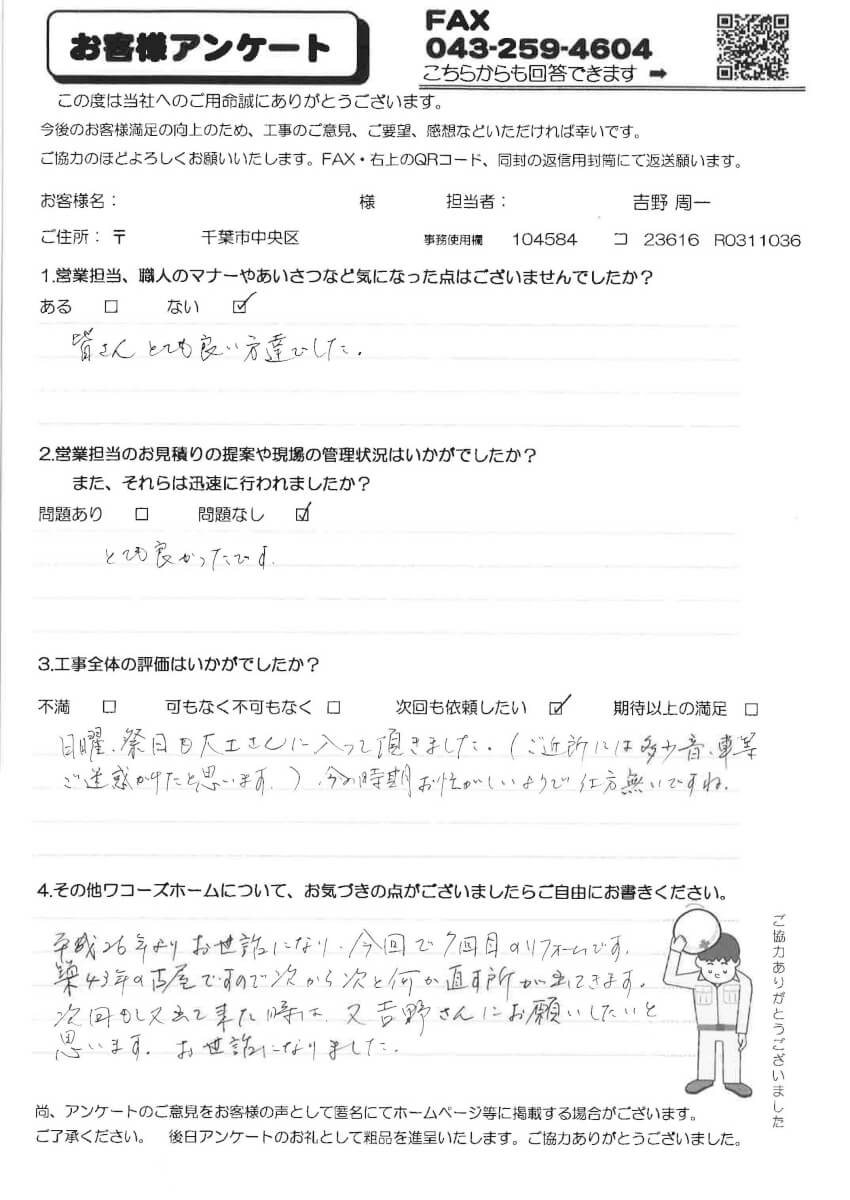 お客様アンケート
FAX
043-259-4604
こちらからも回答できます ➡
この度は当社へのご用命誠にありがとうございます。
今後のお客様満足の向上のため、工事のご意見、ご要望、感想などいただければ幸いです。
ご協力のほどよろしくお願いいたします。FAX・右上のQRコード、同封の返信用封筒にて返送願います。
お客様名： 様 担当者： 吉野 周一
ご住所：〒 千葉市中央区 事務使用欄 104584 コ 23616 R0311036
1.営業担当、職人のマナーやあいさつなど気になった点はございませんでしたか？
ある □ ない ☑
皆さんとても良い方達でした。
2.営業担当のお見積りの提案や現場の管理状況はいかがでしたか？
また、それらは迅速に行われましたか？
問題あり □ 問題なし ☑
とても良かったです.
3.工事全体の評価はいかがでしたか？
不満 □ 可もなく不可もなく □ 次回も依頼したい ☑ 期待以上の満足 □
日曜、祭日も大工さんに入って頂きました。(ご近所には多少音、車等
ご迷惑かけたと思います。)今の時期お忙がしいようで仕方無いですね.
4.その他ワコーズホームについて、お気づきの点がございましたらご自由にお書きください。
平成26年よりお世話になり、今回で7回目のリフォームです.
築43年の古屋ですので次から次と何か直す所が出てきます.
次回もし又出て来た時は、又吉野さんにお願いしたいと
思います. お世話になりました.
ご協力ありがとうございました
尚、アンケートのご意見をお客様の声として匿名にてホームページ等に掲載する場合がございます。
ご了承ください。 後日アンケートのお礼として粗品を進呈いたします。ご協力ありがとうございました。